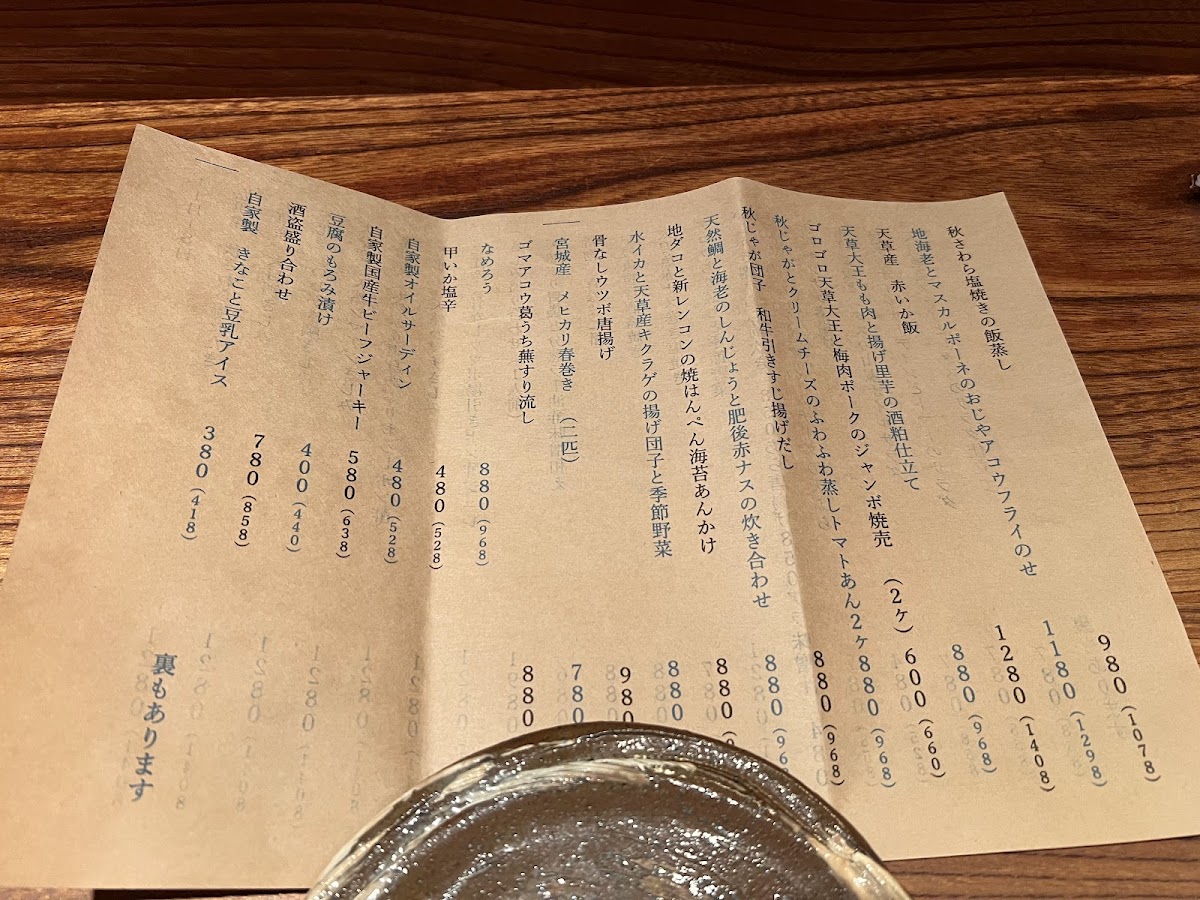 秋さわら塩焼きの飯蒸し 980(1078)
地海老とマスカルポーネのおじやアコウフライのせ 1180(1298)
天草産 赤いか飯 1280(1408)
天草大王もも肉と揚げ里芋の酒粕仕立て 880(968)
ゴロゴロ天草大王と梅肉ポークのジャンボ焼売 (2ヶ) 600(660)
秋じゃがとクリームチーズのふわふわ蒸しトマトあん2ヶ 880(968)
秋じゃが団子 和牛引きすじ揚げだし 880(968)
天然鯛と海老のしんじょうと肥後赤ナスの炊き合わせ 880(96
地ダコと新レンコンの焼はんぺん海苔あんかけ 880
水イカと天草産キクラゲの揚げ団子と季節野菜 880
骨なしウツボ唐揚げ 980
宮城産 メヒカリ春巻き (二匹) 780
ゴマアコウ葛うち蕪すり流し 880
なめろう 880(968)
甲いか塩辛 480(528)
自家製オイルサーディン 480(528)
自家製国産牛ビーフジャーキー 580(638)
豆腐のもろみ漬け 400(440)
酒盗盛り合わせ 780(858)
自家製 きなこと豆乳アイス 380(418)
裏もあります